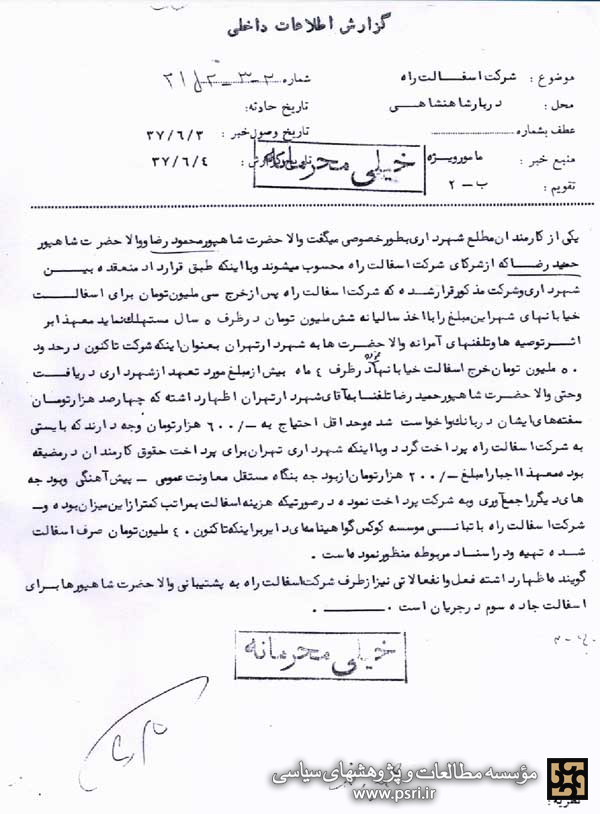 گزارش اطلاعات داخلی
موضوع : شرکت اسفالت راه
شماره
محل : دربار شاهنشاهی
تاریخ حادثه:
عطف بشماره
تاریخ وصول خبر : ۳۷/۶/۳
منبع خبر : مامور ویژه
گزارش : ۳۷/۶/۴
خیلی محرمانه
تقویم : ب – ۲
یکی از کارمندان مطلع شهرداری بطور خصوصی میگفت والا حضرت شاهپور محمود رضا و والا حضرت شاهپور
حمید رضا که از شرکای شرکت اسفالت راه محسوب میشوند و با اینکه طبق قرارداد منعقده بین
شهرداری و شرکت مذکور قرار شده که شرکت اسفالت راه پس از خرج سی ملیون تومان برای اسفالت
خیابانهای شهر این مبلغ را با اخذ سالیانه شش ملیون تومان در ظرف ۵ سال مستهلک نماید معهذا بر
اثر توصیه ها و تلفنهای آمرانه والا حضرت ها به شهردار تهران بعنوان اینکه شرکت تاکنون در حدود
۵۰ ملیون تومان خرج اسفالت خیابانها نموده در ظرف ۴ ماه بیش از مبلغ مورد تعهد از شهرداری دریافت
وحتی والا حضرت شاهپور حمید رضا تلفنا به آقای شهردار تهران اظهار داشته که چهارصد هزار تومان
سفته های ایشان در بانک واخواست شده وحداقل احتیاج به -/۶۰۰ هزار تومان وجه دارند که بایستی
به شرکت اسفالت راه پرداخت گردد و با اینکه شهرداری تهران برای پرداخت حقوق کارمندان در مضیقه
بوده معهذا اجبارا مبلغ -/۲۰۰ هزار تومان از بودجه بنگاه مستقل معاونت عمومی – پیش آهنگی و بودجه
های دیگر را جمع آوری و به شرکت پرداخت نموده در صورتیکه هزینه اسفالت بمراتب کمتر از این میزان بوده و –
شرکت اسفالت راه با تبانی موسسه کوکس گواهینامه ای دایر بر اینکه تاکنون ۴۰ ملیون تومان صرف اسفالت
شده تهیه و در اسناد مربوطه منظور نموده است .
گوینده اظهار داشته فعل وانفعالاتی نیز از طرف شرکت اسفالت راه به پشتیبانی والا حضرت شاهپورها برای
اسفالت جاده سوم در جریان است .
خیلی محرمانه
مؤسسه مطالعات و پژوهشهای سیاسی
www.psri.ir
نظریه :